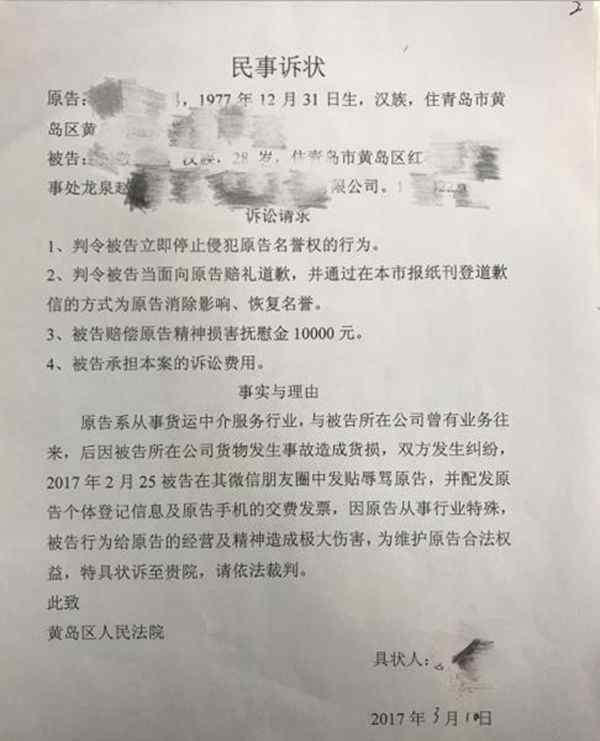 2
民事诉状
原告：，1977 年 12 月 31 日生，汉族，住青岛市黄
岛区黄
被告：汉族，28 岁，住青岛市黄岛区红
事处龙泉赵限公司。1
诉讼请求
1、判令被告立即停止侵犯原告名誉权的行为。
2、判令被告当面向原告赔礼道歉，并通过在本市报纸刊登道歉
信的方式为原告消除影响、恢复名誉。
3、被告赔偿原告精神损害抚慰金 10000 元。
4、被告承担本案的诉讼费用。
事实与理由
原告系从事货运中介服务行业，与被告所在公司曾有业务往
来，后因被告所在公司货物发生事故造成货损，双方发生纠纷，
2017 年 2 月 25 被告在其微信朋友圈中发贴辱骂原告，并配发原
告个体登记信息及原告手机的交费发票，因原告从事行业特殊，
被告行为给原告的经营及精神造成极大伤害，为维护原告合法权
益，特具状诉至贵院，请依法裁判。
此致
黄岛区人民法院
具状人：
2017 年 3 月 10 日